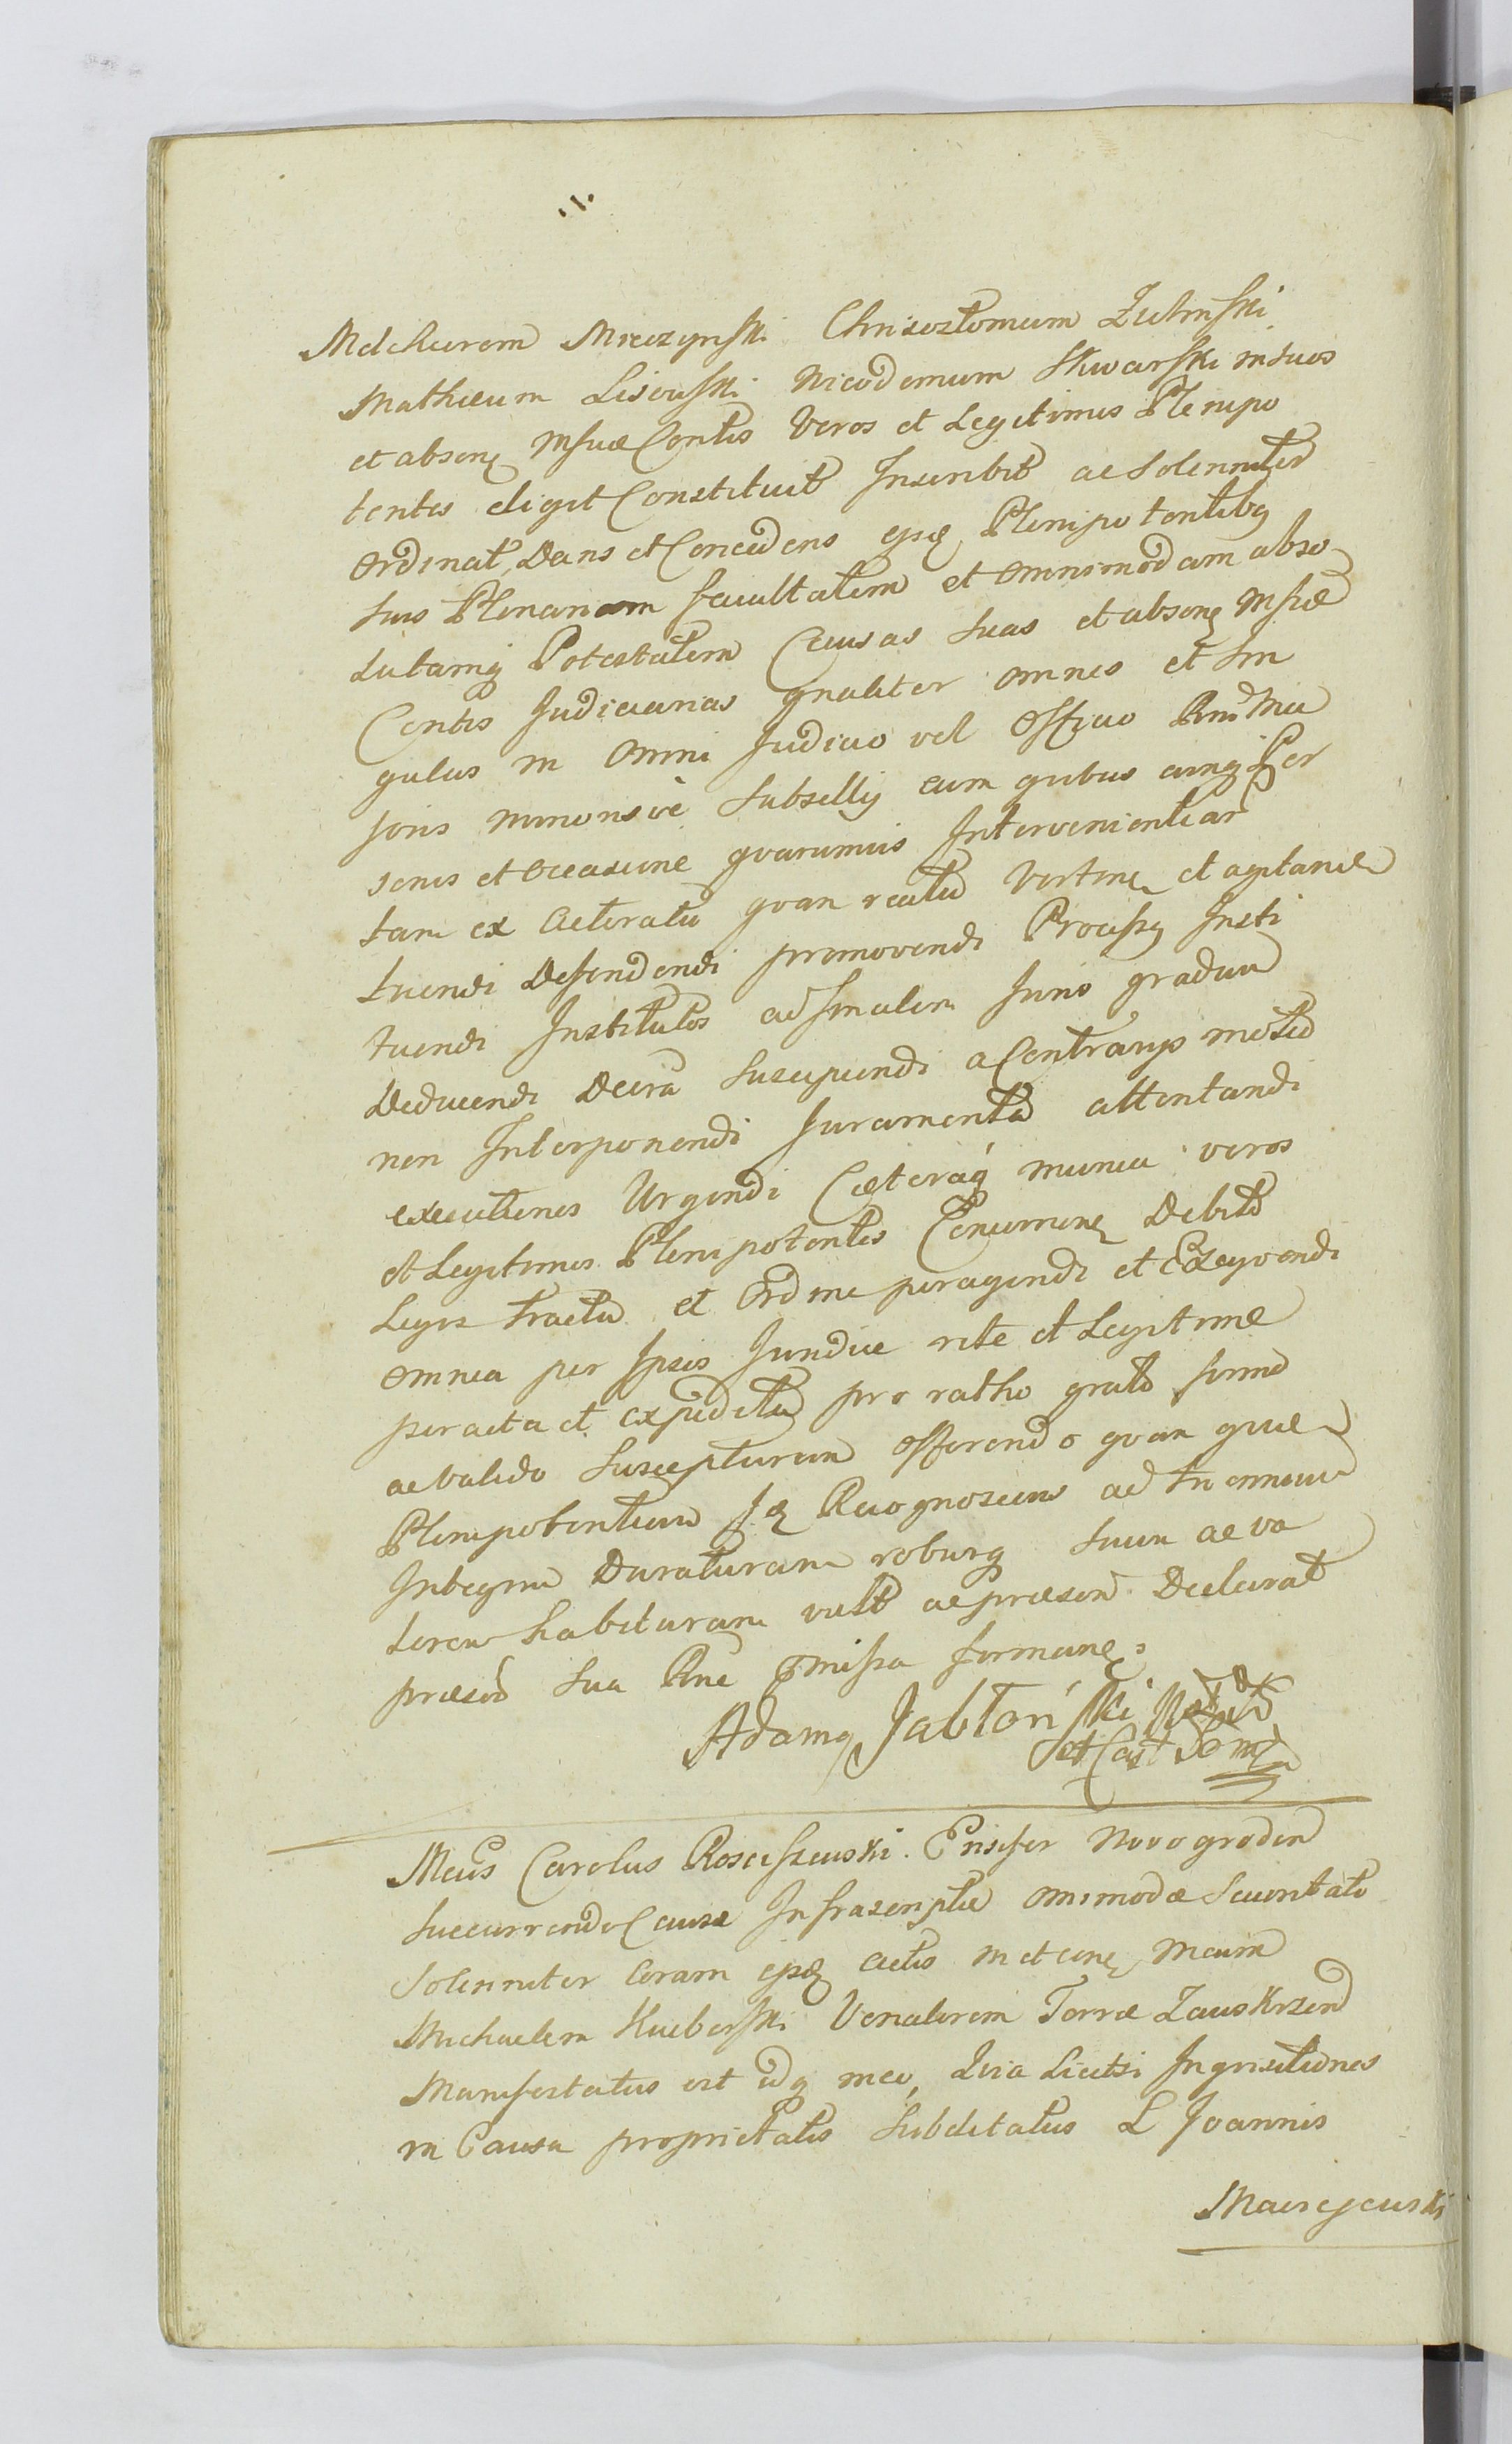 Melchiorem Mieczynski Chrisostomum Zielinski
Mathæum Lisowski Nicodemum Skwarski in suos
et absen. Insuæ Contis Veros et Legitimos Plenipo
tentes eligit Constituit Inscribit ac Solenniter
Ordinat, Dans et Concedens ejsq Plenipotentibq
suis Plenariam facultatem et omnimodam abso
lutamq Potestatem Causas suas et absen. Insuæ
Contis Judiciarias gnaliter omnes et sin
gulas in omni Judicio vel Officio Rni Ma
joris minorisve Subsellij cum quibus cunq Per
sonis et occasione quarumvis Intervenientiar
tam ex Actoratu quam reatu Verten. et agitan.
tuendi Defendendi promovendi Processq Insti
tuendi Institutos ad finalem Juris gradum
Deducendi Decra Suscipiendi a Contrarijs motio
nem Interponendi Juramenta attentandi
executiones Urgendi Cæteraq munia veros
et Legitimos Plenipotentes Concernen. Debito
Legis tractu et Ordine peragendi et Exeqvendi
omnia per Ipsos Juridice rite et Legitime
peracta et expedita pro ratho grato firmo
ac valido Suscepturum offerendo quam quidem
Plenipotentiam Recognoscens ad triennium
Integrum Duraturam roburq suum ac va
lorem habituram vult ac præsen Declarat
præsen Sua Rne missa formane
Adamq Jabłoński
et Cast
Mcus Carolus Rosciszewski Ensifer Novogroden
Succurrendo Causæ Infrascriptæ omimodæ Securitati
Solenniter Coram ejsq Actis in et con. Mcum
Michaelem Kuberski Venatorem Terræ Zawskrzen
Manifestatus est idq meo, Quia Licetsi Inquisitiones
in Causa proprietatis Subditatus L Joannis
Maiejewski